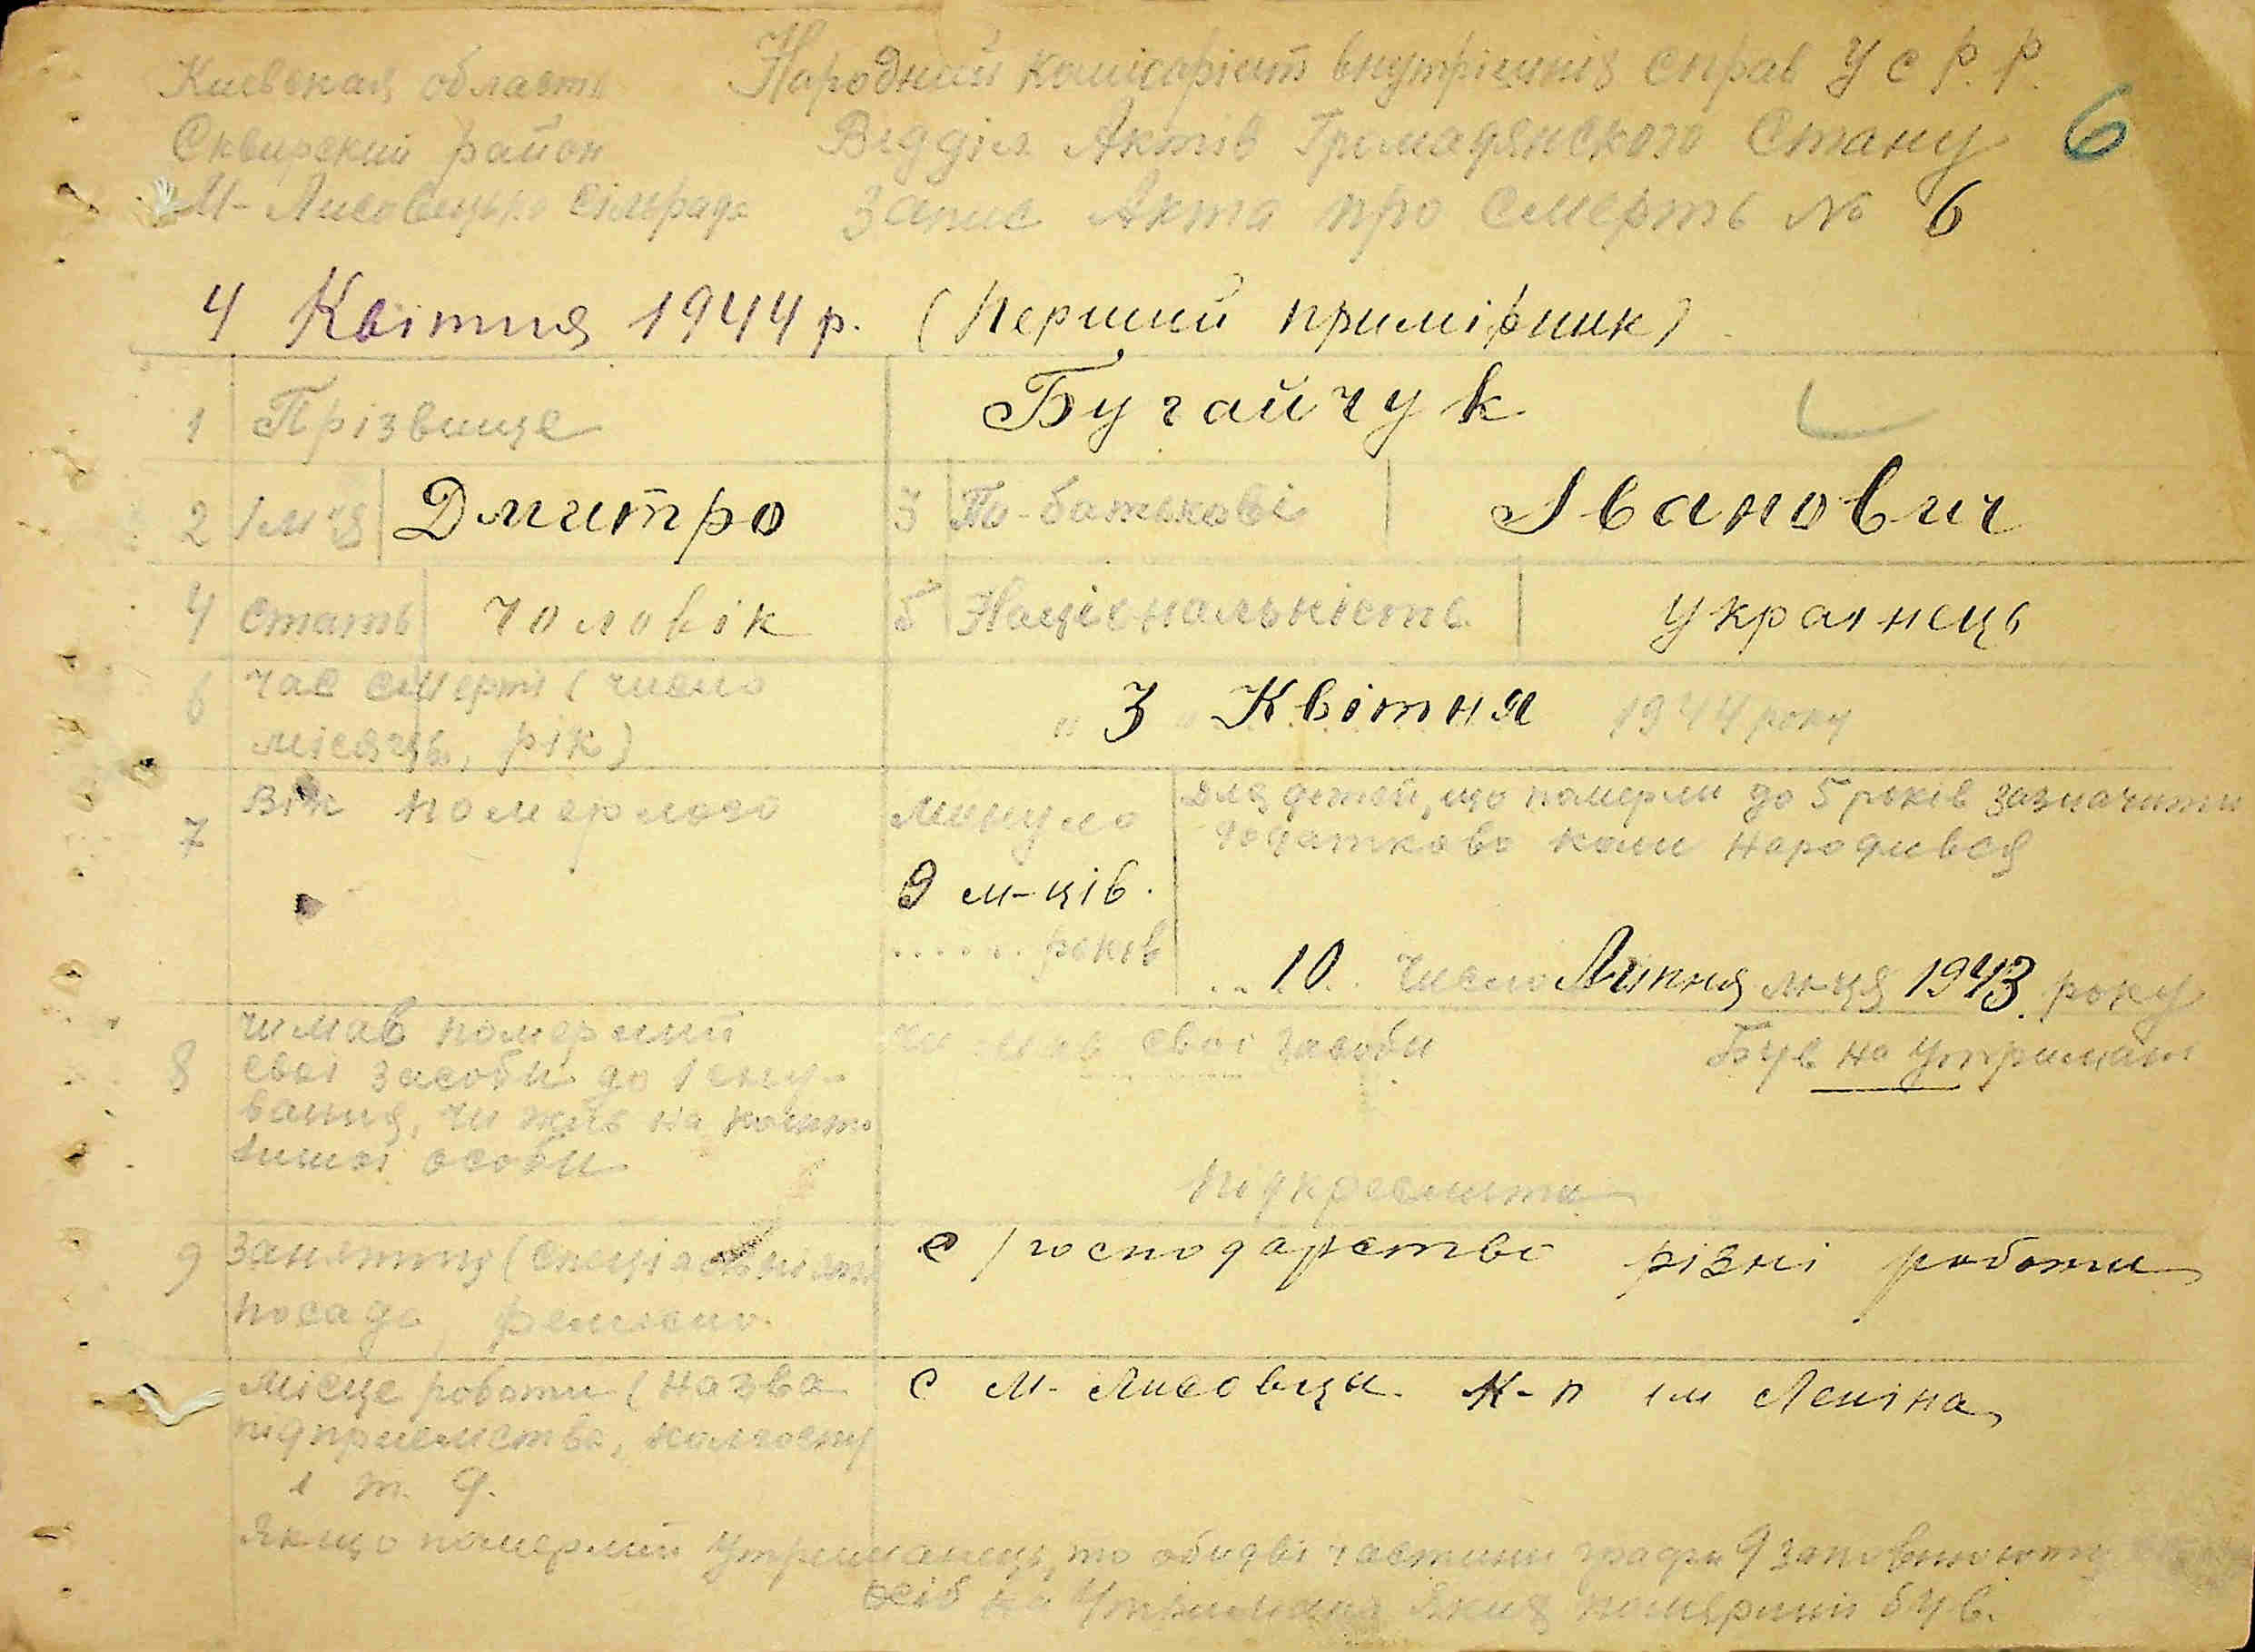 Киевская область Народний комісаріат внутрішніх справ У С Р. Р.
Сквирский район Відділ Актів Громадянского Стану 6
М-Лисовецька сільрада Запис Акта про смерть № 6
4 Квітня 1944 р. (Перший примірник)
1 Прізвище Бугайчук
2 Ім'я Дмитро 3 По-батькові Іванович
4 стать чоловік 5 Національність українець
6 час смерті (число
місяць, рік) "3" Квітня 1944 року
7 Вік померлого минуло для дітей, що померли до 5 років зазначити
додатково коли народився
9 м-ців.
...... років ..10.. число Липня м-ця 1943. року
8 чи мав померлий чи мав свої засоби Був на утриман
свої засоби до існу-
вання, чи жив на кошти
іншої особи
підкреслити
9 заняття (спеціальність с/господарство різні роботи
посада, ремесло.
Місце роботи (назва с М-Лисовци. К-п ім Леніна
підприємства, колгоспу
і т. д.
Якщо померлий Утриманець, то обидві частини графи 9 заповнюють
осіб на Утримана яких померший був.